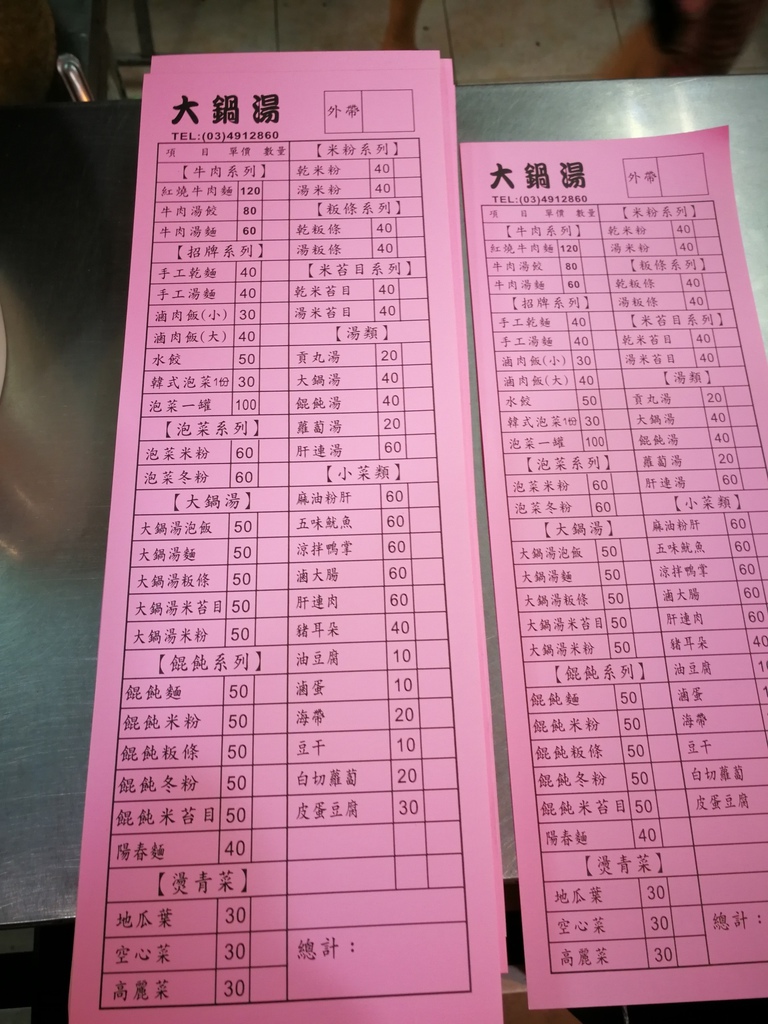 大鍋湯
外帶
TEL:(03)4912860
項 目 單價 數量
【牛肉系列】
紅燒牛肉麵 120
牛肉湯餃 80
牛肉湯麵 60
【招牌系列】
手工乾麵 40
手工湯麵 40
滷肉飯(小) 30
滷肉飯(大) 40
水餃 50
韓式泡菜1份 30
泡菜一罐 100
【泡菜系列】
泡菜米粉 60
泡菜冬粉 60
【大鍋湯】
大鍋湯泡飯 50
大鍋湯麵 50
大鍋湯粄條 50
大鍋湯米苔目 50
大鍋湯米粉 50
【餛飩系列】
餛飩麵 50
餛飩米粉 50
餛飩粄條 50
餛飩冬粉 50
餛飩米苔目 50
陽春麵 40
【燙青菜】
地瓜葉 30
空心菜 30
高麗菜 30
【米粉系列】
乾米粉 40
湯米粉 40
【粄條系列】
乾粄條 40
湯粄條 40
【米苔目系列】
乾米苔目 40
湯米苔目 40
【湯類】
貢丸湯 20
大鍋湯 40
餛飩湯 40
蘿蔔湯 20
肝連湯 60
【小菜類】
麻油粉肝 60
五味魷魚 60
涼拌鴨掌 60
滷大腸 60
肝連肉 60
豬耳朵 40
油豆腐 10
滷蛋 10
海帶 20
豆干 10
白切蘿蔔 20
皮蛋豆腐 30
總計：
大鍋湯
外帶
TEL:(03)4912860
項 目 單價 數量
【牛肉系列】
紅燒牛肉麵 120
牛肉湯餃 80
牛肉湯麵 60
【招牌系列】
手工乾麵 40
手工湯麵 40
滷肉飯(小) 30
滷肉飯(大) 40
水餃 50
韓式泡菜1份 30
泡菜一罐 100
【泡菜系列】
泡菜米粉 60
泡菜冬粉 60
【大鍋湯】
大鍋湯泡飯 50
大鍋湯麵 50
大鍋湯粄條 50
大鍋湯米苔目 50
大鍋湯米粉 50
【餛飩系列】
餛飩麵 50
餛飩米粉 50
餛飩粄條 50
餛飩冬粉 50
餛飩米苔目 50
陽春麵 40
【燙青菜】
地瓜葉 30
空心菜 30
高麗菜 30
【米粉系列】
乾米粉 40
湯米粉 40
【粄條系列】
乾粄條 40
湯粄條 40
【米苔目系列】
乾米苔目 40
湯米苔目 40
【湯類】
貢丸湯 20
大鍋湯 40
餛飩湯 40
蘿蔔湯 20
肝連湯 60
【小菜類】
麻油粉肝 60
五味魷魚 60
涼拌鴨掌 60
滷大腸 60
肝連肉 60
豬耳朵 40
油豆腐
滷蛋
海帶
豆干
白切蘿蔔
皮蛋豆腐
總計：